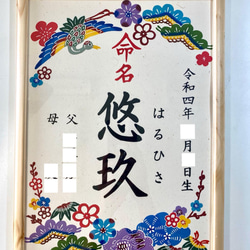 命名
令和四年 月 日生
はるひさ
悠玖
父
母